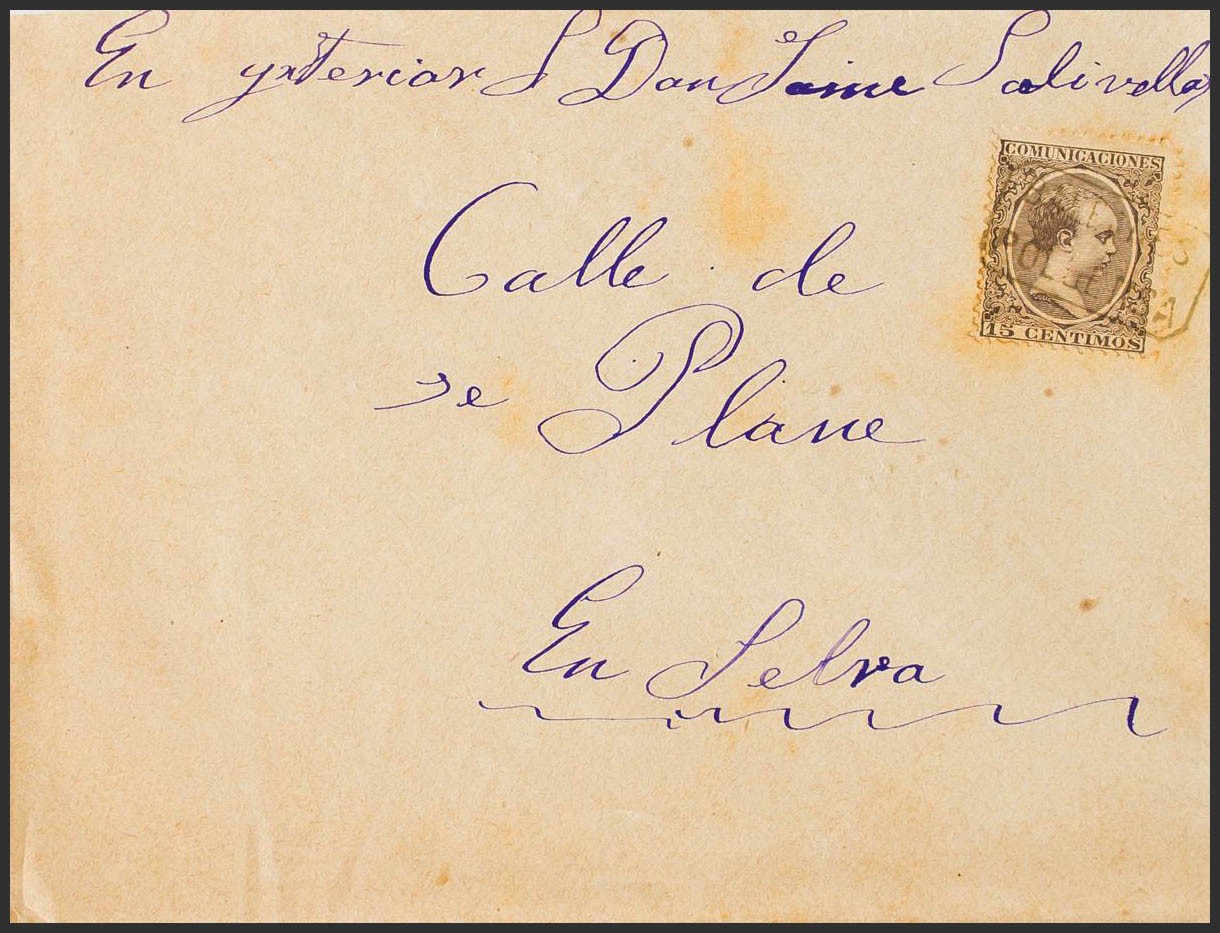 En ynterior S Don Jaime Solivellas
COMUNICACIONES
15 CENTIMOS
Calle de
se Plane
En Selva